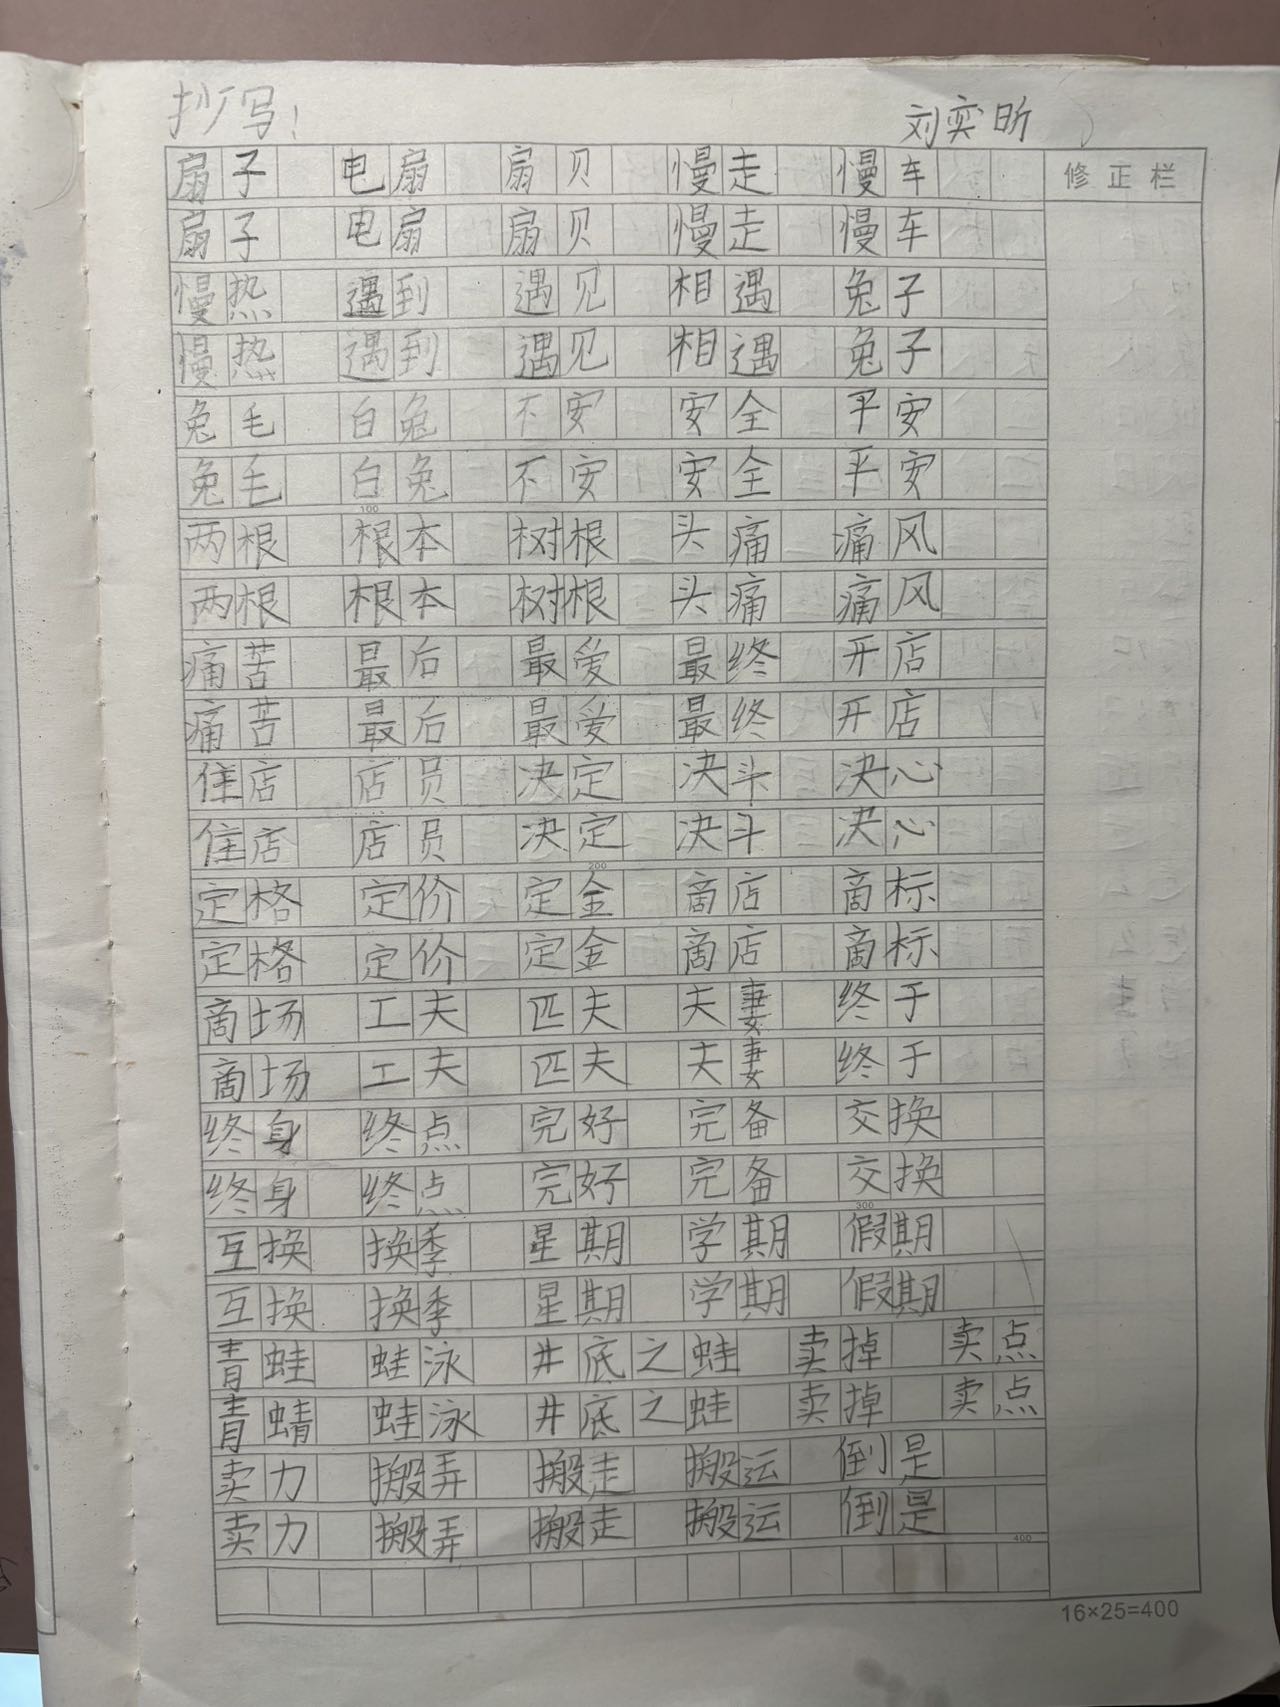 抄写！ 刘奕昕
扇子 电扇 扇贝 慢走 慢车
修正栏
扇子 电扇 扇贝 慢走 慢车
慢热 遇到 遇见 相遇 兔子
慢热 遇到 遇见 相遇 兔子
兔毛 白兔 不安 安全 平安
兔毛 白兔 不安 安全 平安
100
两根 根本 树根 头痛 痛风
两根 根本 树根 头痛 痛风
痛苦 最后 最爱 最终 开店
痛苦 最后 最爱 最终 开店
住店 店员 决定 决斗 决心
住店 店员 决定 决斗 决心
200
定格 定价 定金 商店 商标
定格 定价 定金 商店 商标
商场 工夫 匹夫 夫妻 终于
商场 工夫 匹夫 夫妻 终于
终身 终点 完好 完备 交换
终身 终点 完好 完备 交换
300
互换 换季 星期 学期 假期
互换 换季 星期 学期 假期
青蛙 蛙泳 井底之蛙 卖掉 卖点
青蜻 蛙泳 井底之蛙 卖掉 卖点
卖力 搬弄 搬走 搬运 倒是
卖力 搬弄 搬走 搬运 倒是
400
16×25=400